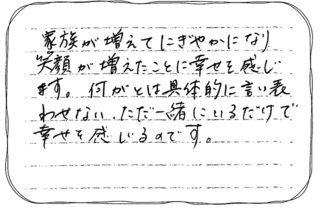 家族が増えてにぎやかになり
笑顔が増えたことに幸せを感じ
ます。何がとは具体的に言い表
わせない、ただ一緒にいるだけで
幸せを感じるのです。